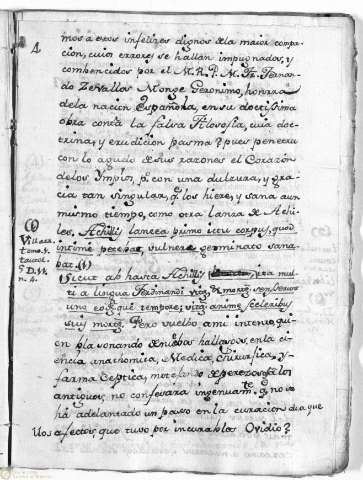 4
mos à estos infelizes dignos de la maior compa-
cion, cuios errores se hallan impugnados, y
combencidos por el M. R. P. M. Fr. Fernan-
do Zevallos Monge Geronimo, honrra
de la nacion Española, en su doctissima
obra contra la falsa Filosofia, cuia doc-
trina, y erudicion pasma? pues penetra
con lo agudo de sus razones el Corazón
de los Ympios, pi con una dulzura, y gra-
cia tan singular, q. los hiere, y sana aun
mismo tiempo, como otra lanza de Achi-
les, Achillis lancea primo ictu corpus, quod
intime petebat, vulnere germinato sana-
bat. (1)
(1)
Villarr.
tom. 5.
tautol.
5. D. 14.
n. 4.
Sicut ab hasta Achillis, ita mul-
ti a lingua Ferdinandi vitã, & mortẽ senserunt
uno eodẽque tempore; vitã animę, sceleribus
suis mortẽ. Pero vuelbo a mi intento, qui-
en blasonando de nuebos hallazgos, en la ci-
encia anathomica, Medica, Chirurgica, y
farmaceptica, motejando de perezosos a los
antiguos, no confesara ingenuamte. q. no se
há adelantado un paso en la curacion de aque
llos afectos, que tuvo por incurables Ovidio?